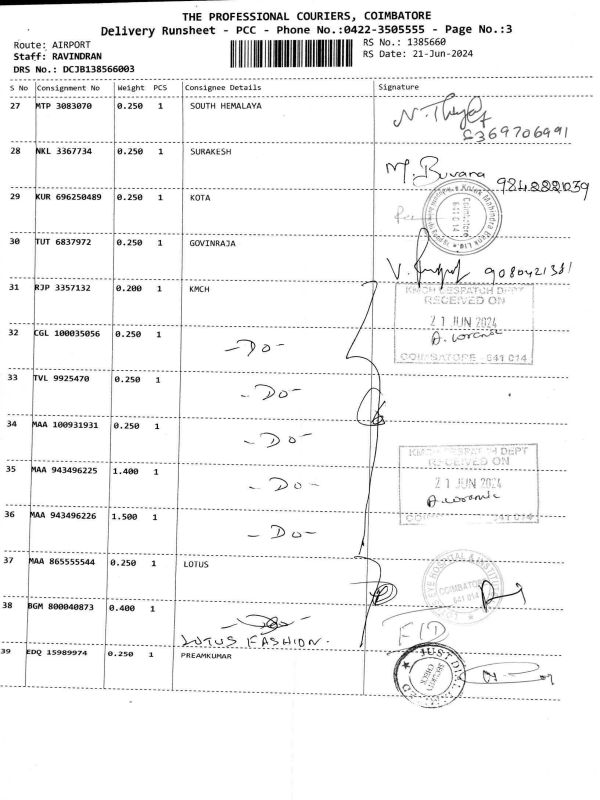 THE PROFESSIONAL COURIERS, COIMBATORE
Delivery Runsheet - PCC - Phone No.:0422-3505555 - Page No.:3
Route: AIRPORT
RS No.: 1385660
Staff: RAVINDRAN
RS Date: 21-Jun-2024
DRS No.: DCJB138566003
S No Consignment No Weight PCS Consignee Details Signature
27 MTP 3083070 0.250 1 SOUTH HEMALAYA
6369706991
28 NKL 3367734 0.250 1 SURAKESH
M. Buvana
29 KUR 696250489 0.250 1 KOTA
30 TUT 6837972 0.250 1 GOVINRAJA
31 RJP 3357132 0.200 1 KMCH
KMCH DESPATCH DEPT
RECEIVED ON
21 JUN 2024
COIMBATORE - 641 014
32 CGL 100035056 0.250 1 -Do-
33 TVL 9925470 0.250 1 -Do-
34 MAA 100931931 0.250 1 -Do-
KMCH DESPATCH DEPT
RECEIVED ON
35 MAA 943496225 1.400 1 -Do-
21 JUN 2024
36 MAA 943496226 1.500 1 -Do-
641 014
37 MAA 865555544 0.250 1 LOTUS
EYE HOSPITAL & INSTITUTE
COIMBATORE
641 014
38 BGM 800040873 0.400 1
LOTUS FASHION.
39 EDQ 15989974 0.250 1 PREAMKUMAR
JUST DIAL
SECURITY
CHECK